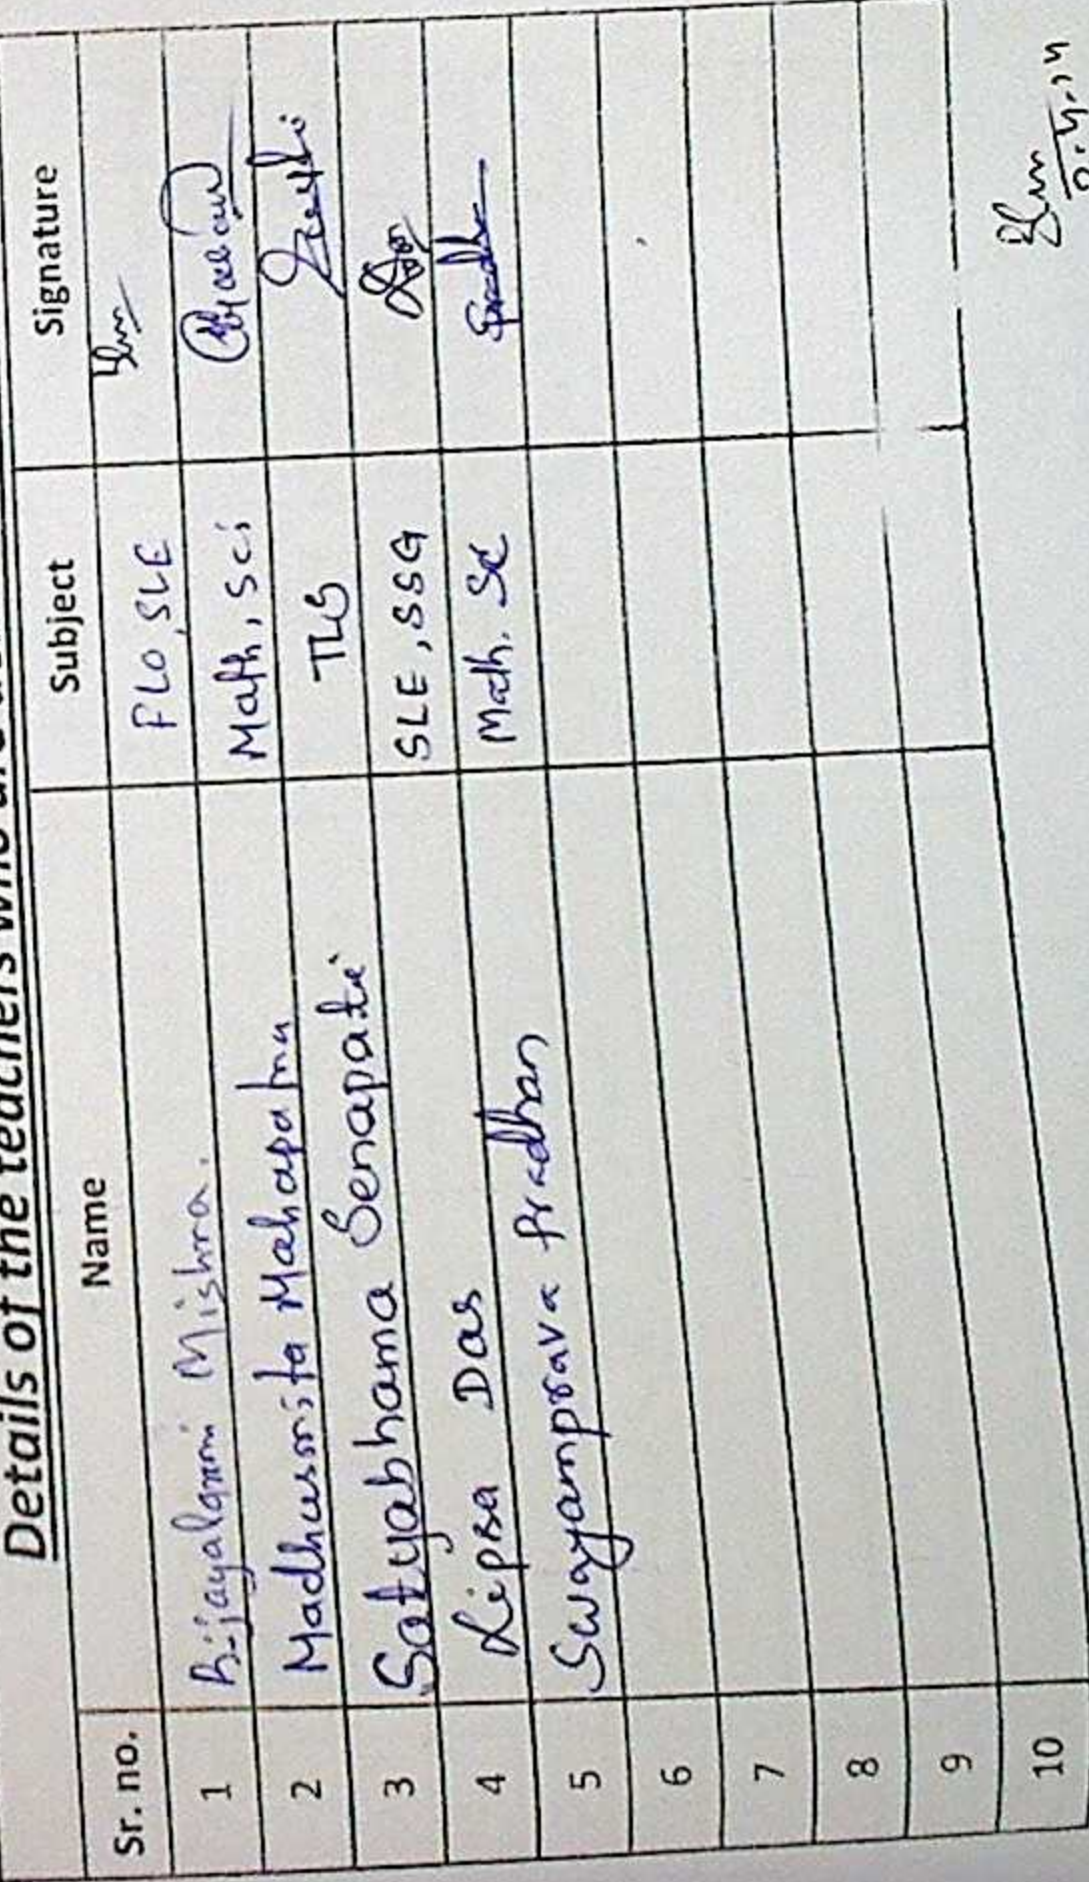 Details of the teachers who are
Sr. no. Name Subject Signature
1 Bijayalaxmi Mishra. FLO, SLE
2 Madhusmita Mahapatra Math, Sci
3 Satyabhama Senapati TLS
4 Lipsa Das SLE, SSG
5 Swayamprava Pradhan Math. Sc Pradhan
6
7
8
9
10